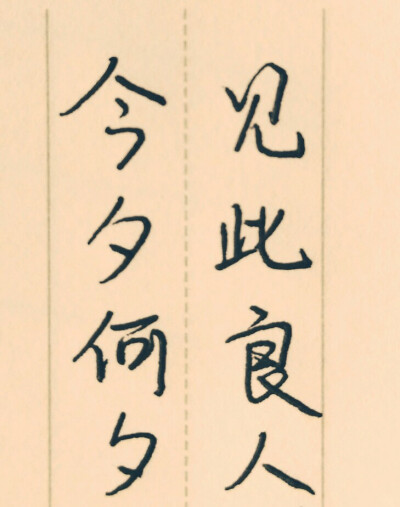 见此良人
今夕何夕